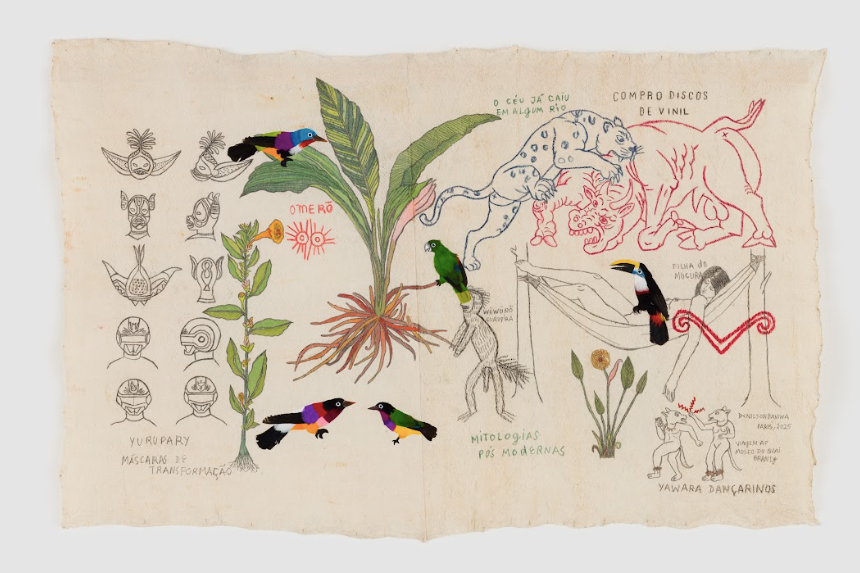 O CÉU JÁ CAIU
EM ALGUM RIO
COMPRO DISCOS
DE VINIL
OMERÕ
FILHA do
YUROPARY
MÁSCARAS DE
TRANSFORMAÇÃO
MITOLOGIAS
PÓS MODERNAS
DENILSON BANIWA
2025
VIAGEM AO
MUSEO DO QUAI
BRANLY
YAWARA DANÇARINOS